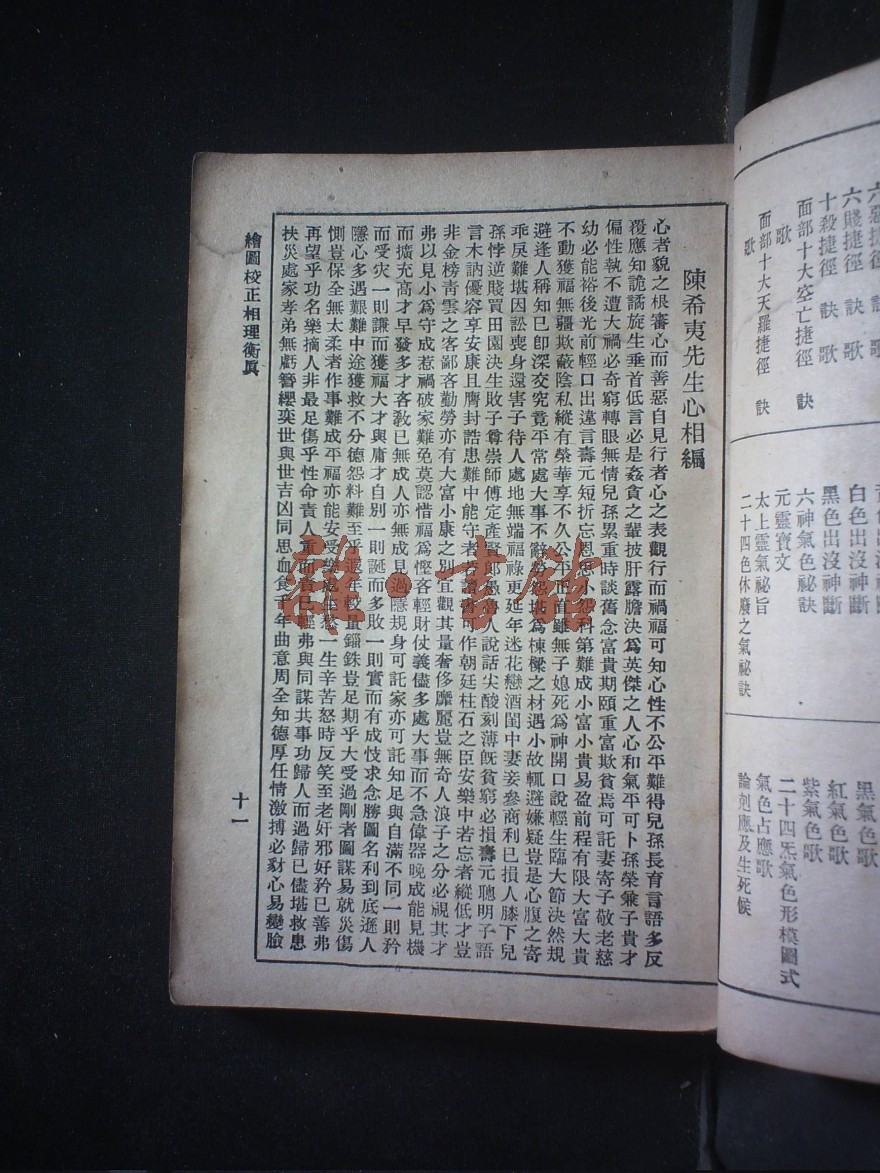 六賤捷徑 訣歌
十殺捷徑 訣歌
面部十大空亡捷徑 訣
歌
面部十大天羅捷徑 訣
歌
白色出沒神斷
黑色出沒神斷
六神氣色祕訣
元靈寶文
太上靈氣祕旨
二十四色休廢之氣祕訣
黑氣色歌
紅氣色歌
紫氣色歌
二十四炁氣色形模圖式
氣色占應歌
論剋應及生死候
陳希夷先生心相編
心者貌之根審心而善惡自見行者心之表觀行而禍福可知心性不公平難得兒孫長育言語多反
覆應知詭譎旋生垂首低言必是姦貪之輩披肝露膽決爲英傑之人心和氣平可卜孫榮兼子貴才
偏性執不遭大禍必奇窮轉眼無情兒孫累重時談舊念富貴期頤重富欺貧焉可託妻寄子敬老慈
幼必能裕後光前輕口出違言壽元短折忘恩思小怨科第難成小富小貴易盈前程有限大富大貴
不動獲福無疆欺蔽陰私縱有榮華享不久公平正直雖無子媳死爲神開口說輕生臨大節決然規
避逢人稱知已卽深交究竟平常處大事不辭勞怨堪爲棟樑之材遇小故輒避嫌疑豈是心腹之寄
乖戾難堪因訟喪身還害子待人處地無端福祿更延年迷花戀酒閨中妻妾參商利已損人膝下兒
孫悖逆賤買田園決生敗子尊崇師傅定產賢郎愚魯人說話尖酸刻薄旣貧窮必損壽元聰明子語
言木訥優容享安康且膺封誥患難中能守者若讀書可作朝廷柱石之臣安樂中若忘者縱低才豈
非金榜靑雲之客鄙吝勤勞亦有大富小康之別宜觀其量奢侈靡麗豈無奇人浪子之分必視其才
弗以見小爲守成惹禍破家難免莫認惜福爲慳客輕財仗義儘多處大事而不急偉器晚成能見機
而擴充高才早發多才客敎已無成人亦無成見過隱規身可託家亦可託知足與自滿不同一則矜
而受災一則謙而獲福大才與庸才自別一則誕而多敗一則實而有成忮求念勝圖名利到底遜人
隱心多遇艱難中途獲救不分德怨料難至乎遐年較量錙銖豈足期乎大受過剛者圖謀易就災傷
惻豈保全無太柔者作事難成平福亦能安受樂處生愁一生辛苦怒時反笑至老奸邪好矜已善弗
再望乎功名樂摘人非最足傷乎性命責人重而責已輕弗與同謀共事功歸人而過歸已儘堪救患
扶災處家孝弟無虧簪纓奕世與世吉凶同思血食千年曲意周全知德厚任情激搏必豺心易變臉
繪圖校正相理衡眞
十一
龍·書館